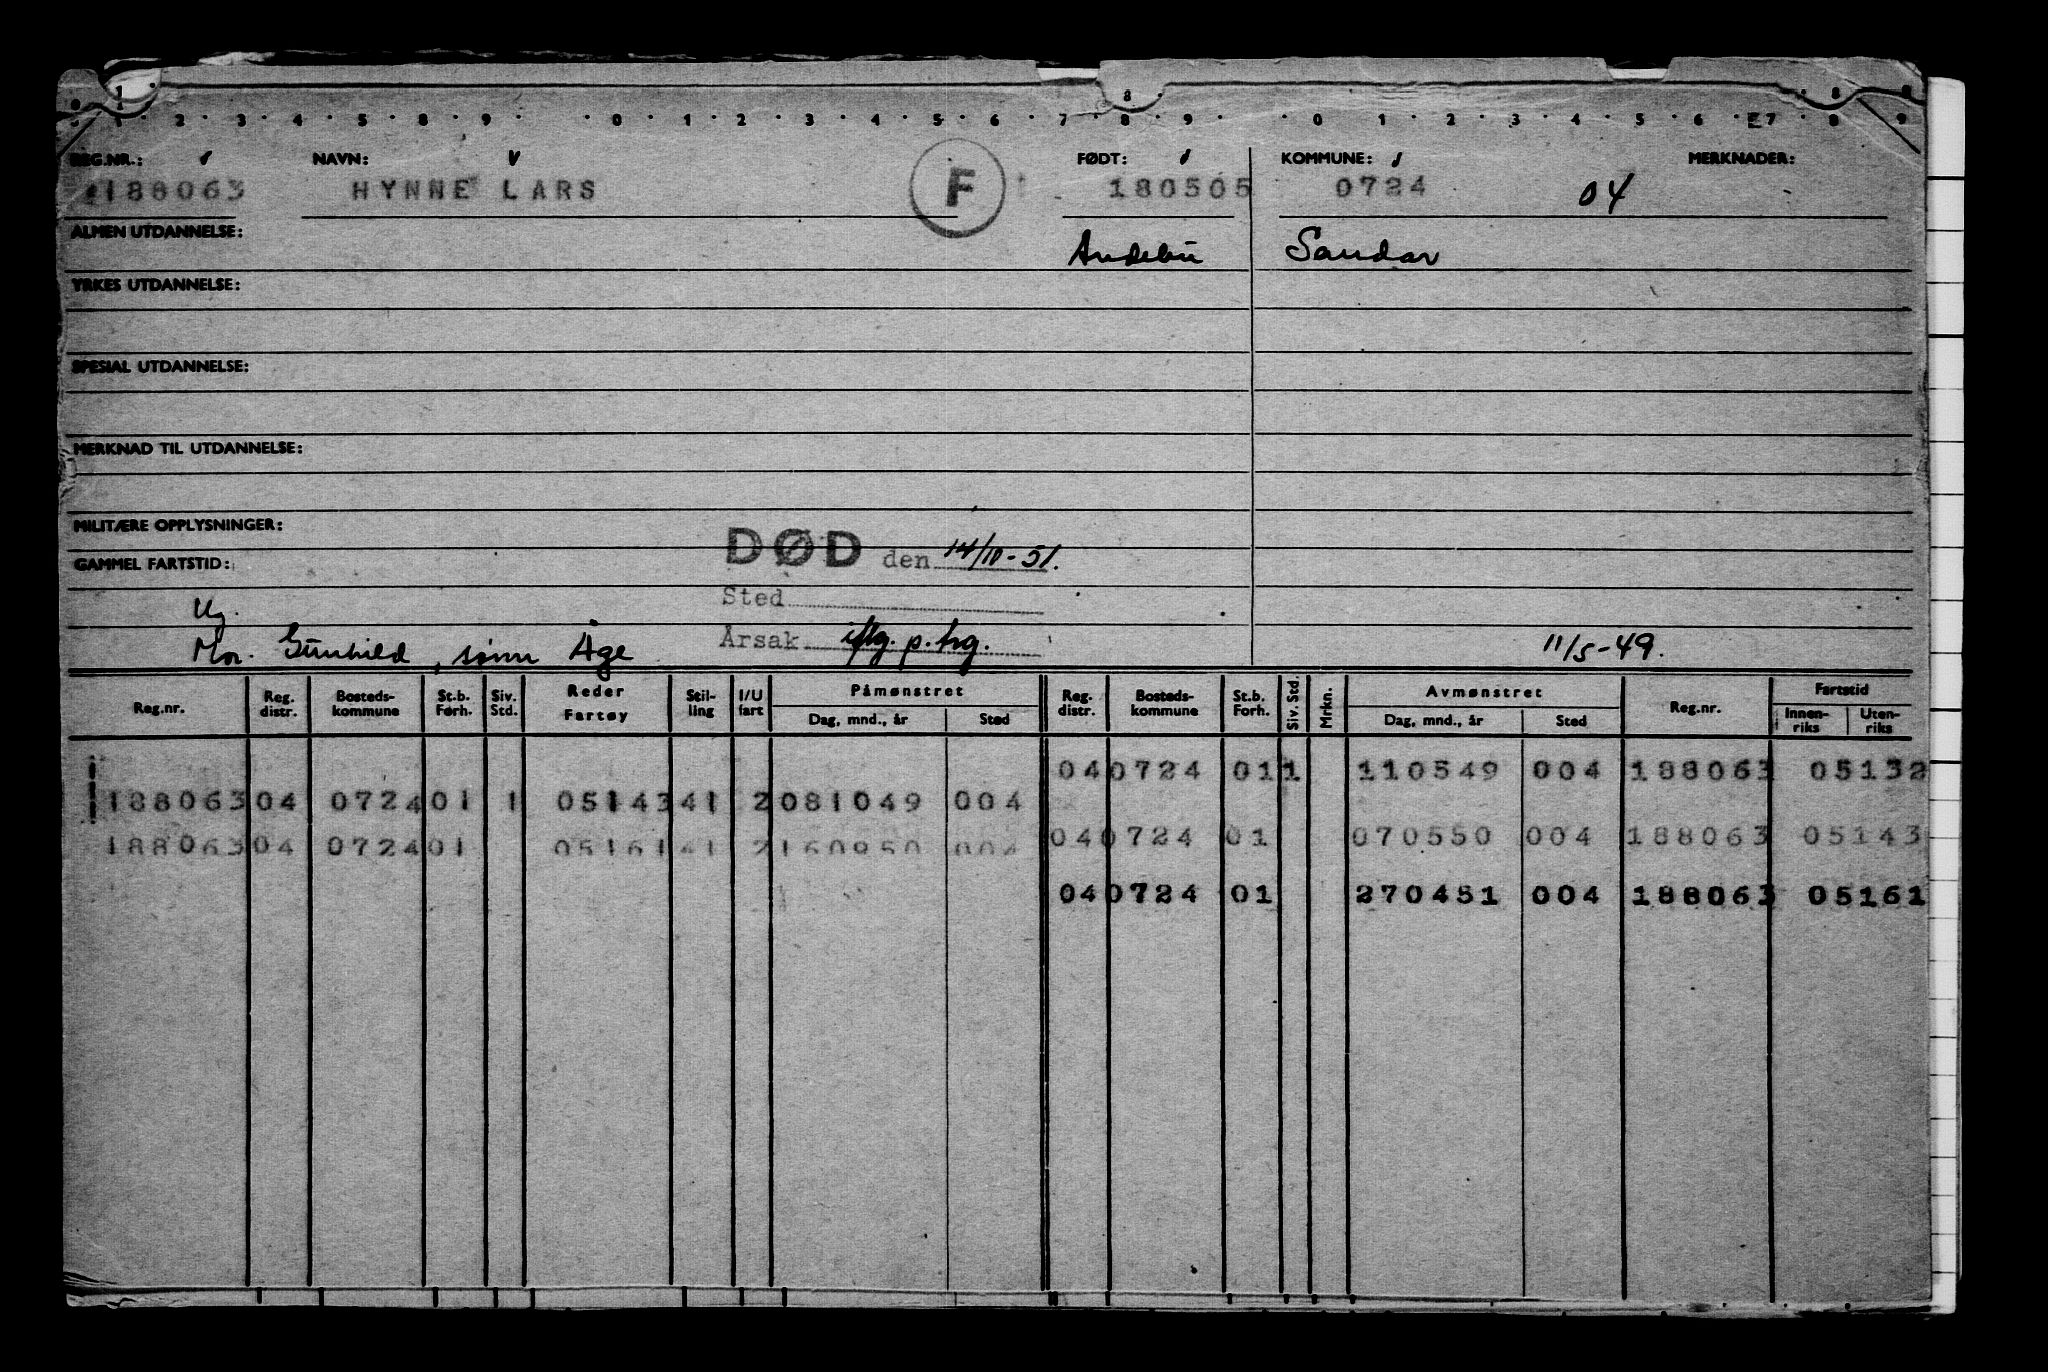 1 . 2 . 3 . 4 . 5 . 8 . 9 . . 0 . 1 . 2 . 3 . 4 . 5 . 6 . 7 . 8 . 9 . . 0 . 1 . 2 . 3 . 4 . 5 . 6 . 7 . 8 . 9
REG.NR.: NAVN: FØDT: KOMMUNE: MERKNADER:
188063 HYNNE LARS F 180505 0724 04
ALMEN UTDANNELSE: Andebu Sandar
YRKES UTDANNELSE:
SPESIAL UTDANNELSE:
MERKNAD TIL UTDANNELSE:
MILITÆRE OPPLYSNINGER:
DØD den 14/10-51.
GAMMEL FARTSTID:
Sted
Ug.
Årsak iflg. p.trg.
Mor. Gunhild, sønn Åge 11/5-49.
Reg.nr. Reg. distr. Bosteds-kommune St.b. Førh. Siv. Std. Reder Fartøy Stil-ling I/U fart Påmønstret Dag, mnd., år Sted Reg. distr. Bosteds-kommune St.b. Forh. Siv. Std. Mrkn. Avmønstret Dag, mnd., år Sted Reg.nr. Fartstid Innen-riks Uten-riks
04 0724 01 1 110549 004 188063 05132
188063 04 0724 01 1 05143 41 2 081049 004
04 0724 01 070550 004 188063 05143
188063 04 0724 01 05161 41 2 160950 004
04 0724 01 270451 004 188063 05161